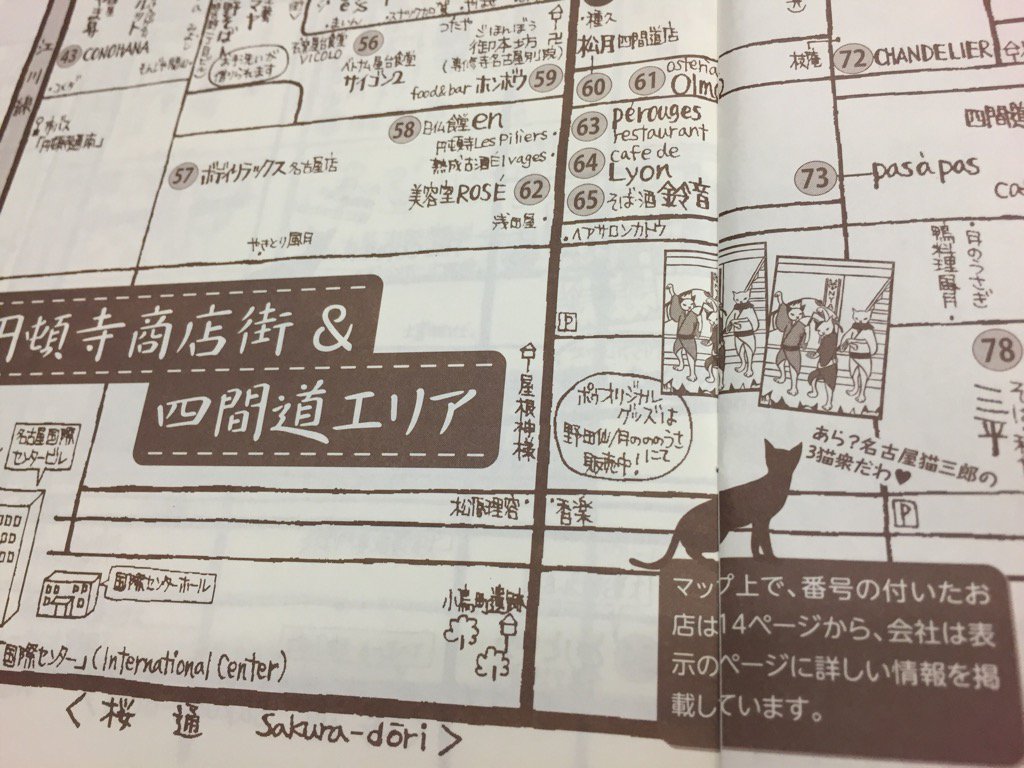 江川線
43 CONOHANA
56
ベトナム屋台食堂
サイゴン2
つたや
ごぼんぼう
御本坊
(専修寺名古屋別院)
food&bar ホンボウ 59
種久
松月 四間道店
60
61 osteria
Olmo
枝庵
72 CHANDELIER
58 日仏食堂 en
円頓寺 Les Piliers
熟成古酒 Élvages
63 pérouges
restaurant
64 cafe de
Lyon
65 そば・酒 鈴音
57 ボディリラックス 名古屋店
美容室 ROSÉ 62
浅田屋
ヘアサロンカトウ
73
pas à pas
四間道
やきとり風月
月のうさぎ
鴨料理 風月
78
三平
円頓寺商店街 &
四間道エリア
P
屋根神様
名古屋国際
センタービル
あら?名古屋猫三郎の
3猫衆だわ♥
販売中!
松原理容
音楽
P
国際センターホール
小鳥町遺跡
国際センター」(International Center)
マップ上で、番号の付いたお
店は14ページから、会社は表
示のページに詳しい情報を掲
載しています。
< 桜 通 Sakura-dōri >